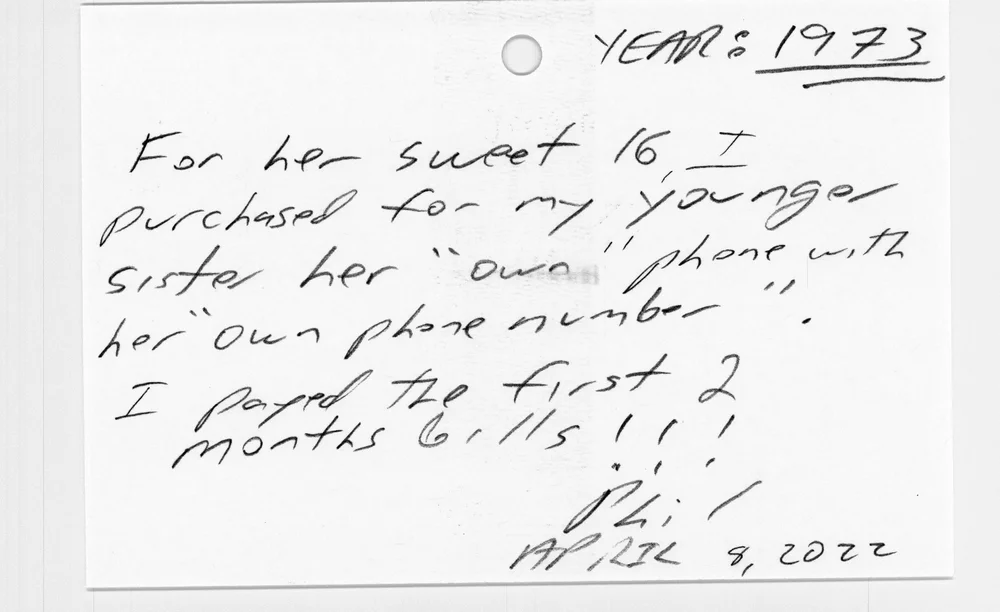 YEAR: 1973
For her sweet 16, I
purchased for my younger
sister her "own" phone with
her "own phone number".
I payed the first 2
months bills!!!
Phil
APRIL 8, 2022